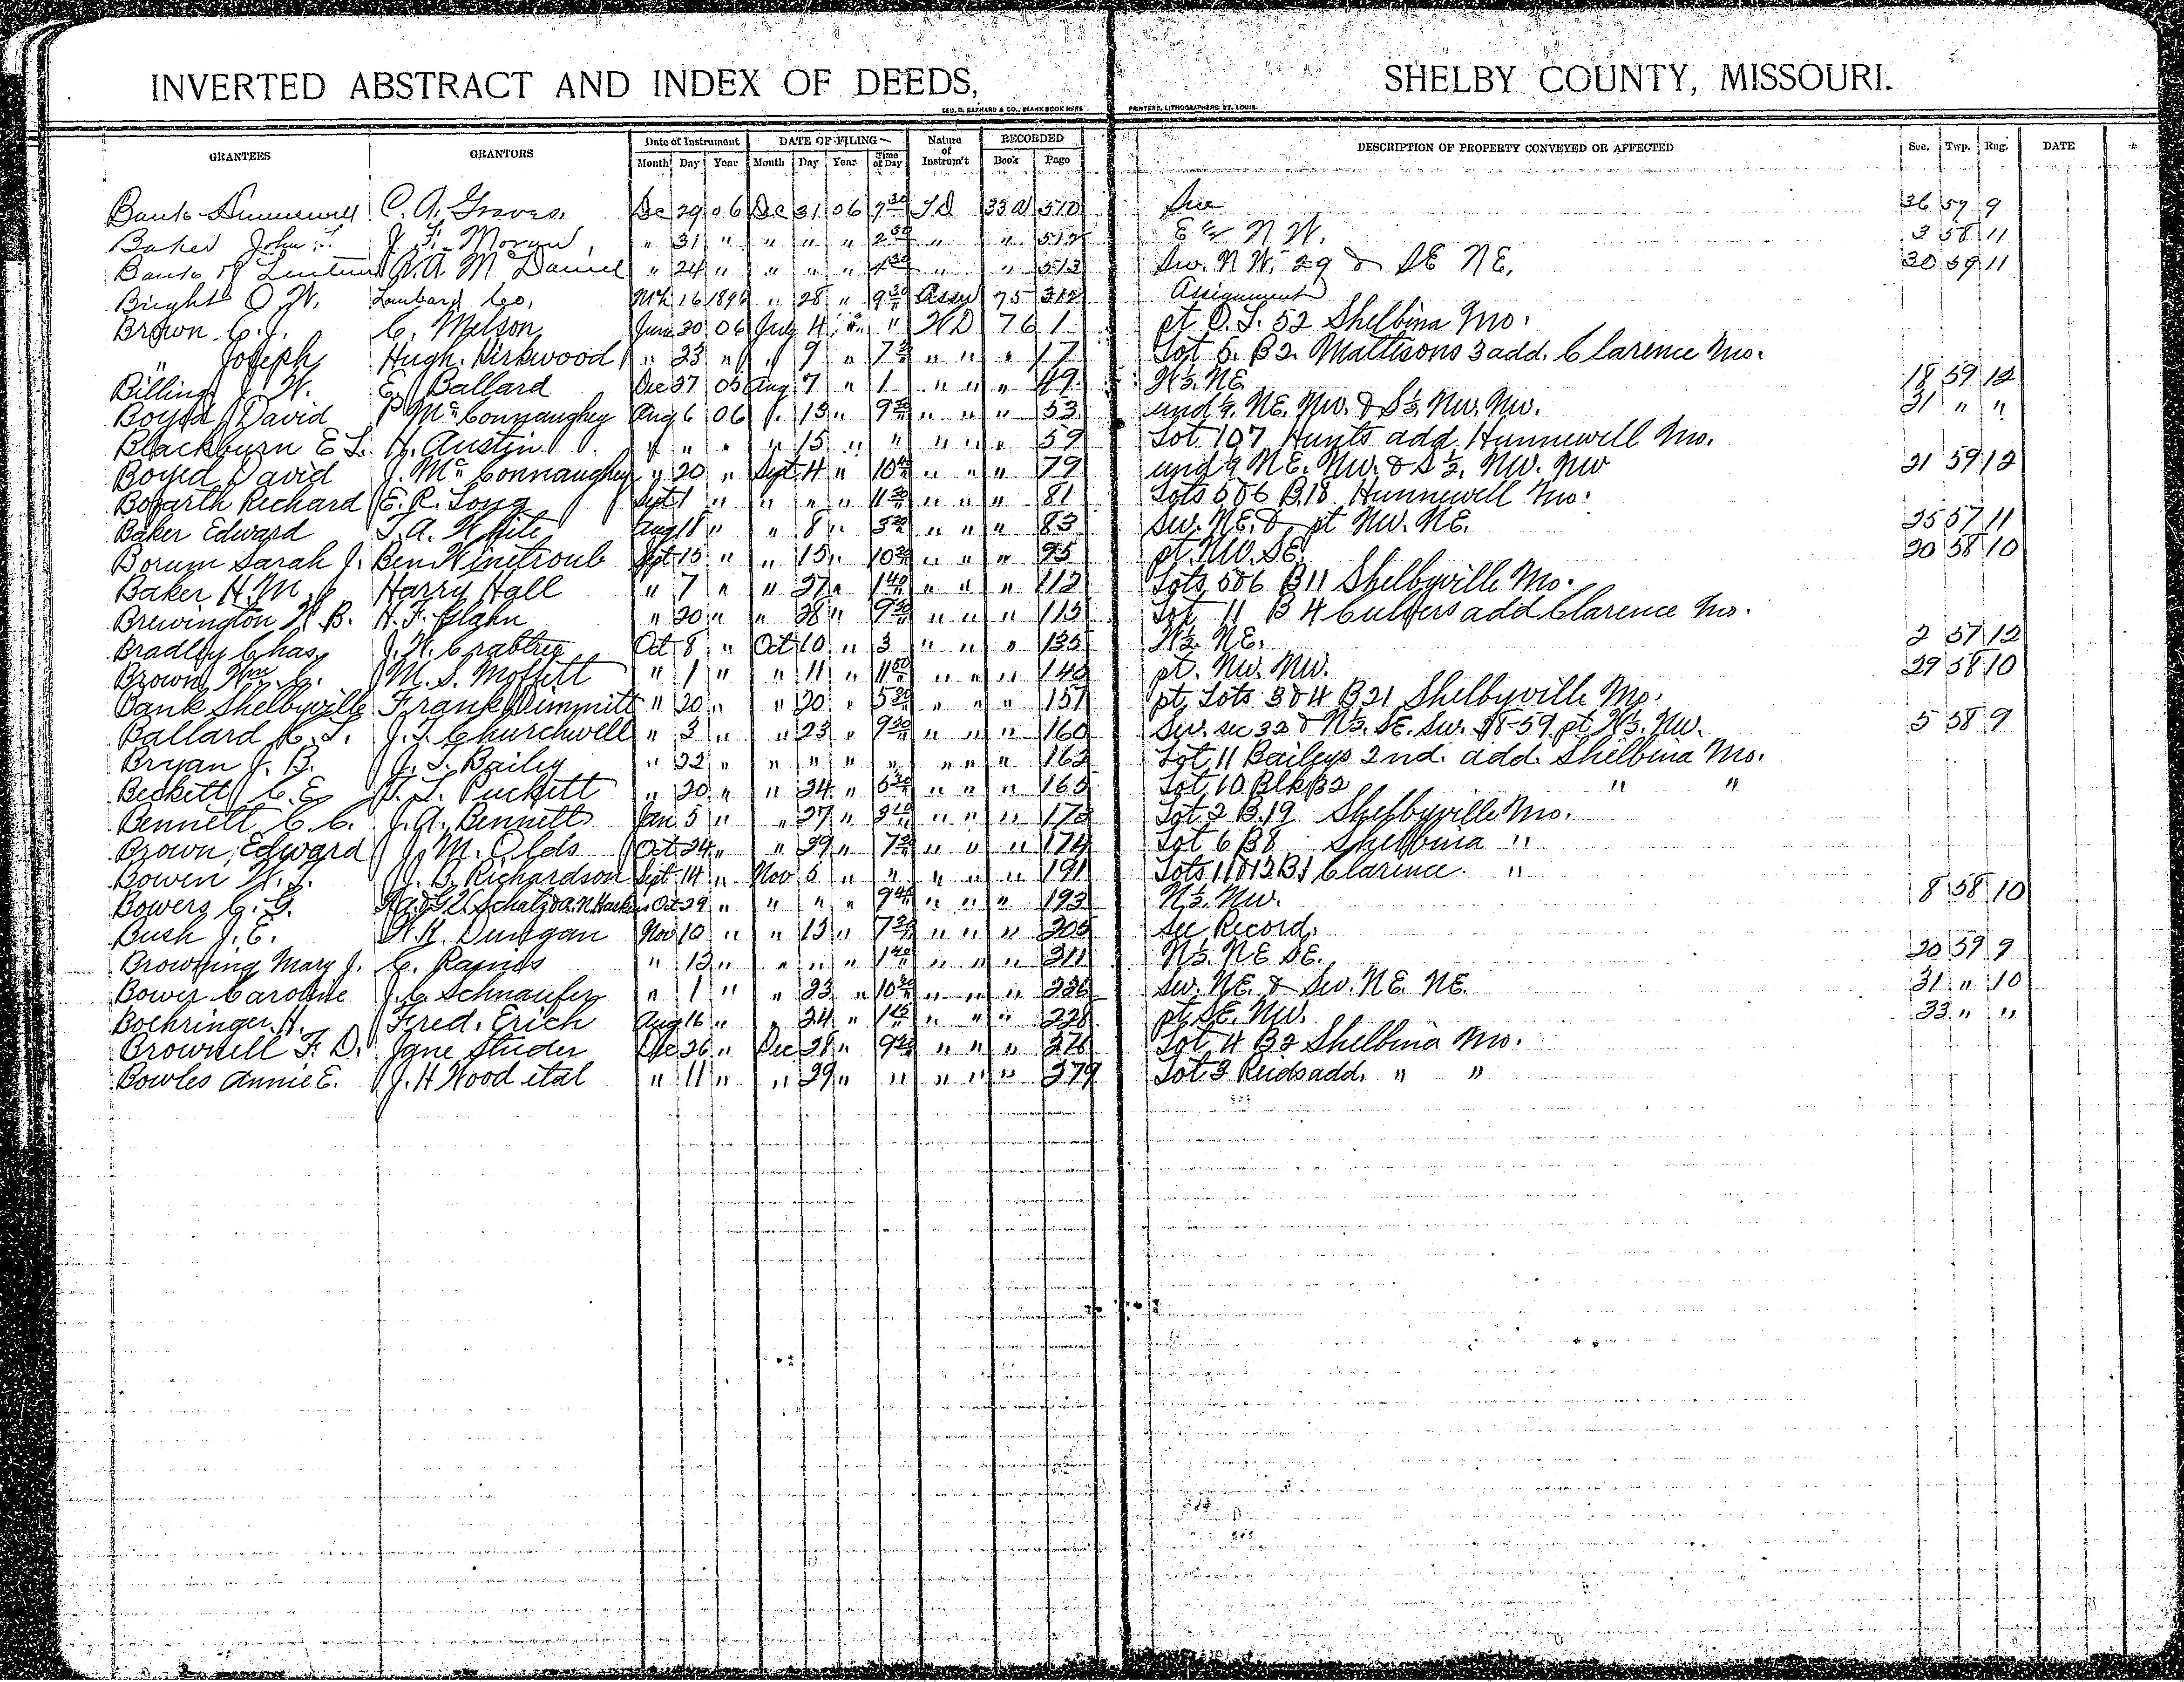 INVERTED ABSTRACT AND INDEX OF DEEDS, SHELBY COUNTY, MISSOURI.
GEO. D. BARNARD & CO., BLANK BOOK MFRS PRINTERS, LITHOGRAPHERS ST. LOUIS.
GRANTEES GRANTORS Date of Instrument Month Day Year DATE OF FILING Month Day Year Time of Day Nature of Instrum't RECORDED Book Page DESCRIPTION OF PROPERTY CONVEYED OR AFFECTED Sec. Twp. Rng. DATE
Bank Hunnewell C. A. Graves. Dec 29 06 Dec 31 06 7 30 33 36 57 9
Baker John J. F. Morgan, " 31 " " " " 2 30 " " N W. 3 58 11
Bank of Lentner A. A. McDaniel " 24 " " " " 4 30 " " 513 Sw. N W. 29 & SE NE. 30 59 11
Bright O W. Lombard Co. Mch 16 1896 " 28 " 9 30 Assn 75 312 Assignment
Brown C. J. C. Melson June 30 06 July 4 " " WD 76 1 pt O. L. 52 Shelbina Mo.
" Joseph Hugh. Kirkwood " 23 " " 9 " 7 30 " " " 17 Lot 5. B 2. Mattisons 3 add. Clarence Mo.
Billing J. W. E. Ballard Dec 27 05 Aug 7 " 1 " " " 49 W½. NE 18 59 12
Boyed David P McConnaughey Aug 6 06 " 13 " 9 " " " 53 NE. NW. & S½. NW. NW. 21 " "
Blackburn E L. H. Austin " " " " 15 " " " " " 59 Lot 107 Hunts add. Hunnewell Mo.
Boyed David J. McConnaughey " 20 " Sept 4 " 10 " " " 79 NE. NW. & S½. NW. NW 21 59 12
Bogarth Richard E. R. Long Sept 1 " " " " 11 30 " " " 81 Lots 5&6 B.18 Hunnewell Mo.
Baker Edward T. A. White Aug 18 " " 8 " " " " 83 SW. NE. & pt NW. NE. 25 57 11
Borum Sarah J. Ben Winetroub Sept 15 " " 15 " 10 " " " 95 pt. NW. SE. 20 58 10
Baker H. M. Harry Hall " 7 " " 27 " 1 40 " " " 112 Lots 5&6 B 11 Shelbyville Mo.
Brewington W. B. H. F. " 20 " " 28 " 9 " " " 115 Lot 11 B 4 Culvers add Clarence Mo.
Bradley Chas. J. W. Crabtree Oct 8 " Oct 10 " 3 " " " 135 W½. NE. 2 57 12
Brown Wm. C. M. S. Moffitt " 1 " " 11 " 11 " " " 140 pt. NW. NW. 29 58 10
Bank Shelbyville Frank Dimmitt " 20 " " 20 " 5 30 " " " 157 pt. Lots 3&4 B 21 Shelbyville Mo.
Ballard J. T. Churchwell " 3 " " 23 " 9 " " " 160 5 58 9
Bryan J. B. J. T. Bailey " 22 " " " " " " " " 162 Lot 11 Baileys 2nd. add. Shelbina Mo.
Beckett C. E. Puckett " 20 " " 24 " " " " 165 Lot 10 Blk B 2 " "
Bennett C. C. J. A. Bennett Jan 5 " " 27 " " " " 172 Lot 2 B. 19 Shelbyville Mo.
Brown, Edward J. M. Olds Oct 24 " " 29 " 7 " " " 174 Lot 6 B 8 Shelbina "
Bowen W. J. J. B. Richardson Sept 14 " Nov 5 " " " " " 191 Lots 11&12 B 1 Clarence "
Bowers C. G. Schatz & A. N. Oct 29 " " " " 9 40 " " " 193 N½. NW. 8 58 10
Bush J. E. Dungan Nov 10 " " 13 " 7 " " " 205 See Record.
Browning Mary J. C. Rains " 12 " " " " 1 40 " " " 211 N½. NE SE. 20 59 9
Bower Caroline J. C. Schnaufer " 1 " " 23 " 10 " " " 226 SW. NE. & SW. NE. NE. 31 " 10
Boehringer. H. Fred. Erich Aug 16 " " 24 " 1 " " " 228 pt. SE. NW. 33 " "
Brownell F. D. Jane Studer Dec 26 " Dec 28 " 9 " " " 276 Lot 4 B 2 Shelbina Mo.
Bowles Annie E. J. H Wood etal " 11 " " 29 " " " " " 279 Lot 3 Reids add. " "